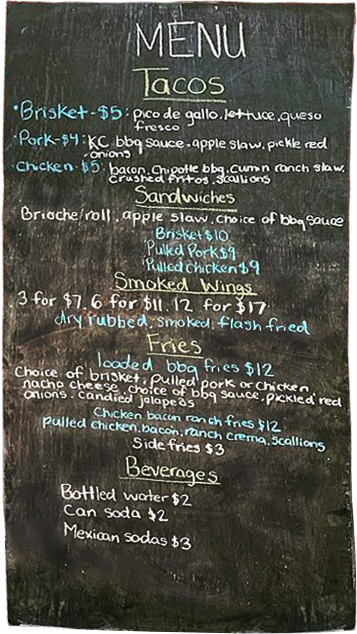 MENU
Tacos
•Brisket-$5: pico de gallo, lettuce, queso
fresco
•Pork-$4: KC bbq sauce, apple slaw, pickle red
onions
•Chicken-$5: bacon, Chipotle bbq, cumin ranch slaw,
crushed fritos, scallions
Sandwiches
Brioche roll, apple slaw, choice of bbq sauce
Brisket $10
Pulled Pork $9
Pulled Chicken $9
Smoked Wings
3 for $7, 6 for $11, 12 for $17
dry rubbed, smoked, flash fried
Fries
loaded bbq fries $12
Choice of brisket, pulled pork or chicken
nacho cheese, choice of bbq sauce, pickled red
onions, candied jalapeños
Chicken bacon ranch fries $12
pulled chicken, bacon, ranch crema, scallions
Side fries $3
Beverages
Bottled water $2
Can soda $2
Mexican sodas $3